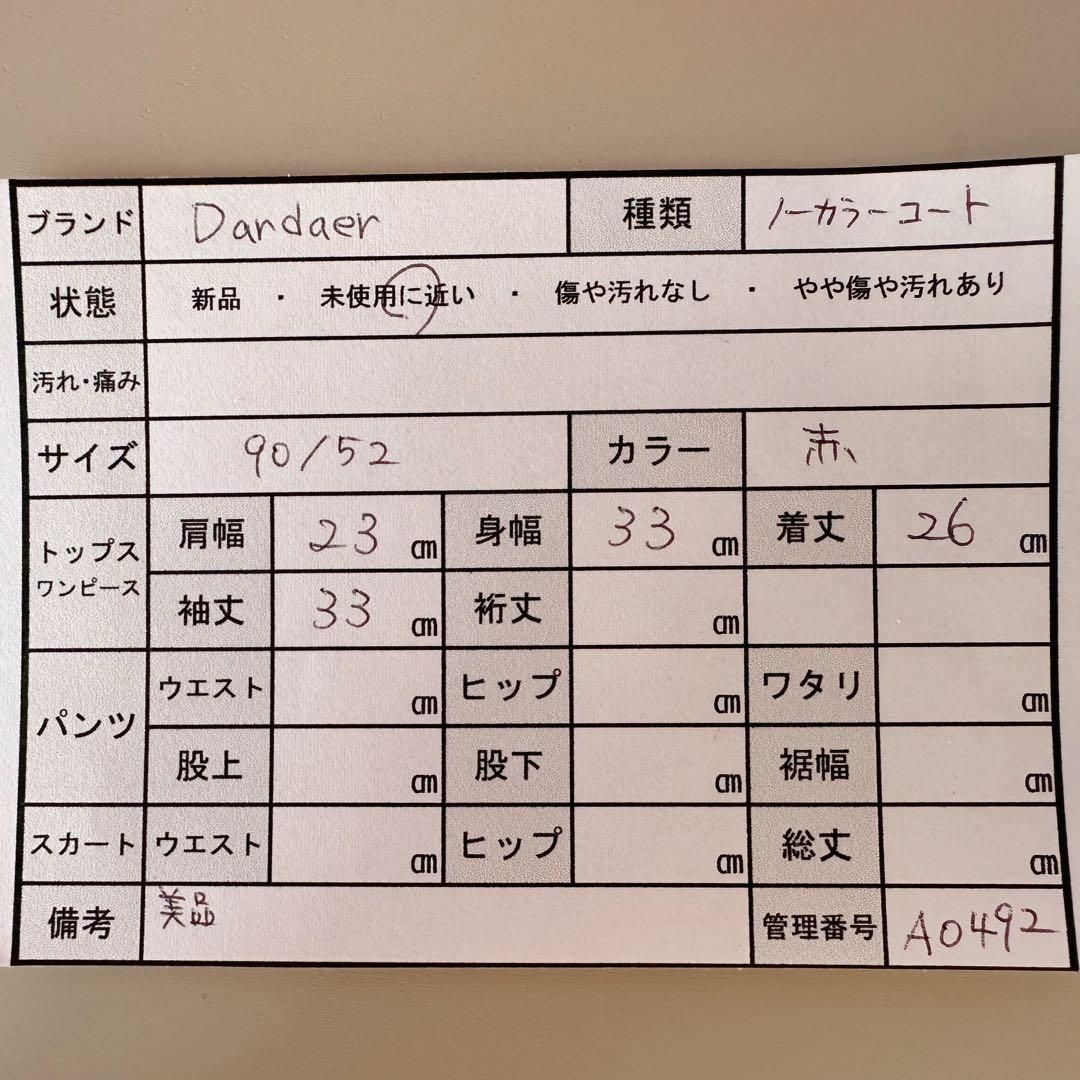 ブランド Dandaer 種類 ノーカラーコート
状態 新品 ・ 未使用に近い ・ 傷や汚れなし ・ やや傷や汚れあり
汚れ・痛み
サイズ 90/52 カラー 赤
トップス ワンピース 肩幅 23 ㎝ 身幅 33 ㎝ 着丈 26 ㎝
袖丈 33 ㎝ 裄丈 ㎝
パンツ ウエスト ㎝ ヒップ ㎝ ワタリ ㎝
股上 ㎝ 股下 ㎝ 裾幅 ㎝
スカート ウエスト ㎝ ヒップ ㎝ 総丈 ㎝
備考 美品 管理番号 A0492